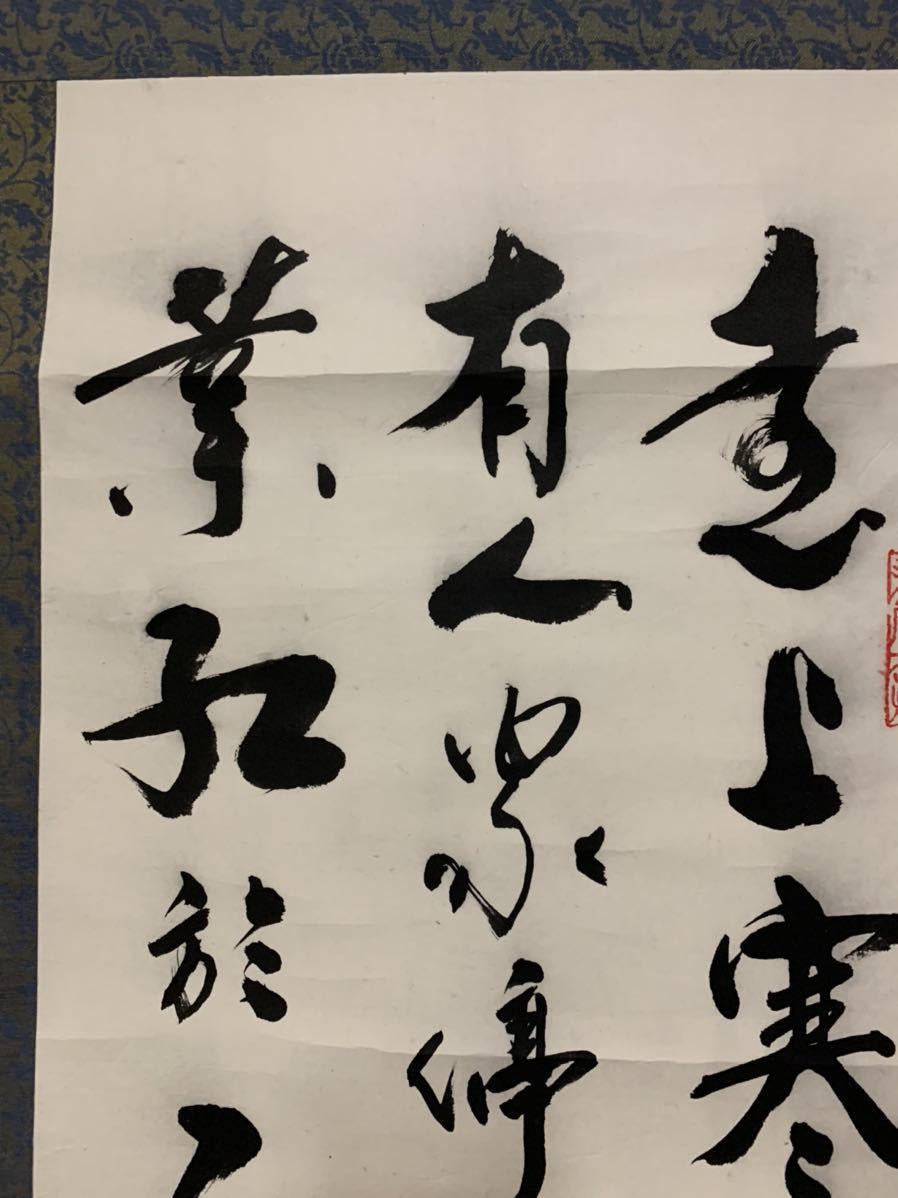 遠上寒
有人家停
葉紅於二